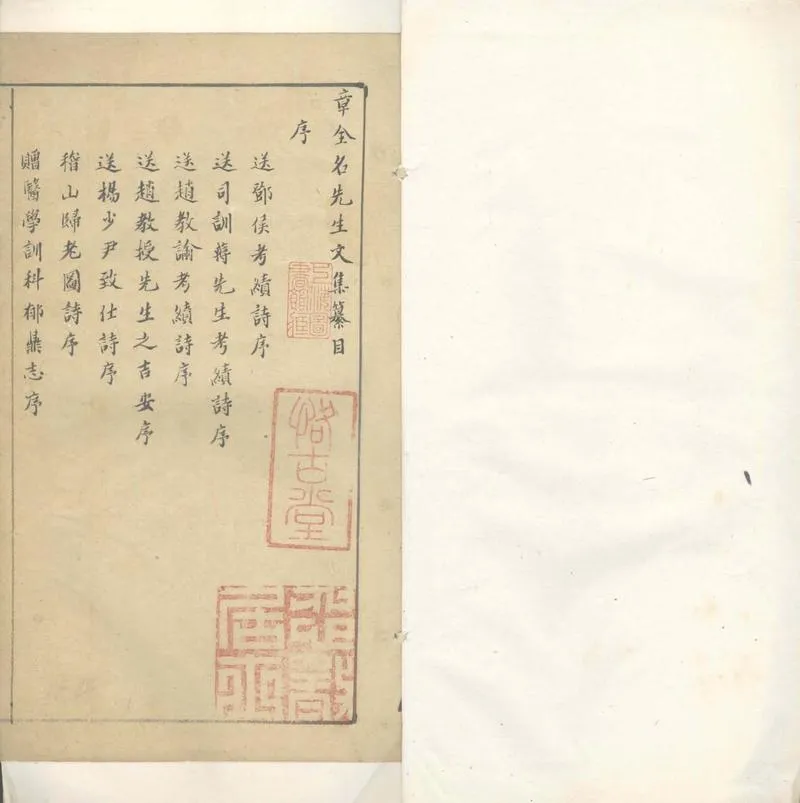 章全名先生文集纂目
序
送鄧侯考績詩序
送司訓蔣先生考績詩序
送趙教諭考績詩序
送趙教授先生之吉安序
送楊少尹致仕詩序
稽山歸老圖詩序
贈醫學訓科郁鼎志序
古堂